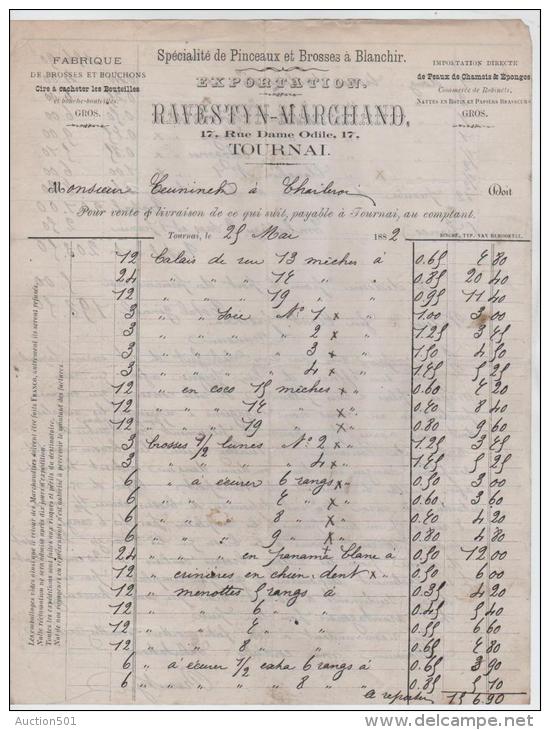 Spécialité de Pinceaux et Brosses à Blanchir.
FABRIQUE
DE BROSSES ET BOUCHONS
Cire à cacheter les Bouteilles
et bouche-bouteilles.
GROS.
EXPORTATION.
RAVESTYN-MARCHAND,
17, Rue Dame Odile, 17,
TOURNAI.
IMPORTATION DIRECTE
de Peaux de Chamois & Éponges
Commerce de Robinets,
NATTES EN ROTIN ET PAPIERS BRASSEURS
GROS.
Monsieur à Charleroi Doit
Pour vente & livraison de ce qui suit, payable à Tournai, au comptant.
Tournai, le 25 Mai 1882
12 Balais de rue 13 mèches à 0.65 7 80
24 " " " 17 " " 0.85 20 40
12 " " " 19 " " 0.95 11 40
3 " " " soie No 1 x " 1.00 3 00
3 " " " " 2 x " 1.25 3 75
3 " " " " 3 x " 1.50 4 50
3 " " " " 4 x " 1.75 5 25
12 " en coco 15 mèches x " 0.60 7 20
12 " " " 17 " x " 0.70 8 40
12 " " " 19 " x " 0.80 9 60
3 Brosses 1/2 lunes No 2 x " 1.25 3 75
3 " " " " 4 x " 1.75 5 25
6 " à écurer 6 rangs x " 0.50 3 00
6 " " " 7 " x " 0.60 3 60
6 " " " 8 " x " 0.70 4 20
6 " " " 9 " x " 0.80 4 80
24 " " " en panama blanc à 0.50 12 00
12 " crinières en chien-dent x " 0.50 6 00
12 " menottes 5 rangs à 0.35 4 20
12 " " 6 " " 0.45 5 40
12 " " 7 " " 0.55 6 60
12 " " 8 " " 0.65 7 80
6 " à écurer 1/2 6 rangs à 0.65 3 90
6 " " " " " 8 " " 0.85 5 10
à reporter 156.90
Les emballages vides ainsi que le retour des Marchandises doivent être faits FRANCO, autrement ils seront refusés.
Nulle réclamation ne sera admise après dix jours d'expédition.
Toutes les expéditions sont faites aux risques et périls du destinataire.
Nul de nos voyageurs ou représentants n'est autorisé à percevoir le montant des factures.
Auction501
www.delcampe.net